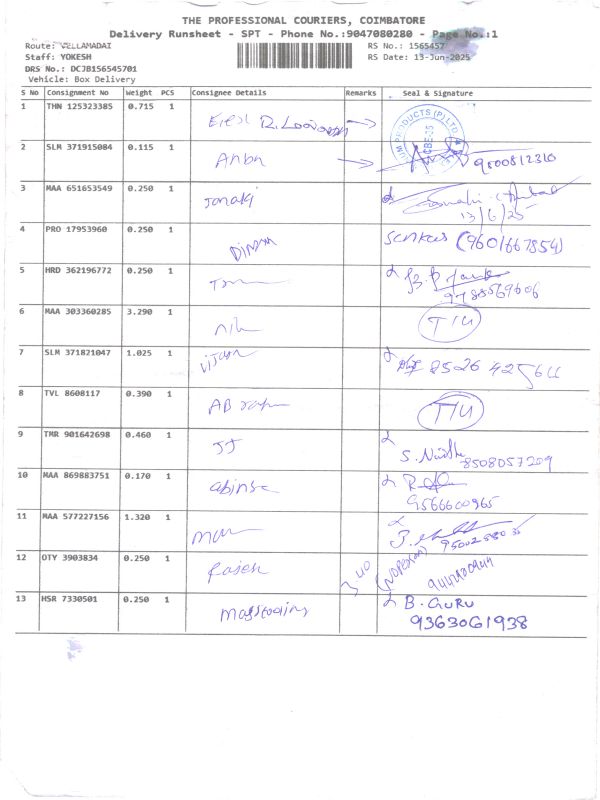 THE PROFESSIONAL COURIERS, COIMBATORE
Delivery Runsheet - SPT - Phone No.:9047080280 - Page No.:1
Route: VELLAMADAI
RS No.: 1565457
Staff: YOKESH
RS Date: 13-Jun-2025
DRS No.: DCJB156545701
Vehicle: Box Delivery
S No Consignment No Weight PCS Consignee Details Remarks Seal & Signature
1 THN 125323385 0.715 1
UM PRODUCTS (P) LTD.
CBE-35
2 SLM 371915084 0.115 1 Anbu 9500812310
3 MAA 651653549 0.250 1 Janaki
13/6/25
4 PRO 17953960 0.250 1 (9601667854)
5 HRD 362196772 0.250 1
9788569606
6 MAA 303360285 3.290 1 T/U
7 SLM 371821047 1.025 1 Vijaya
8 TVL 8608117 0.390 1 T/U
9 TMR 901642698 0.460 1 JJ S.
8508057209
10 MAA 869883751 0.170 1
9566600965
11 MAA 577227156 1.320 1
12 OTY 3903834 0.250 1 Rajesh
13 HSR 7330501 0.250 1 B. GURU
9363061938